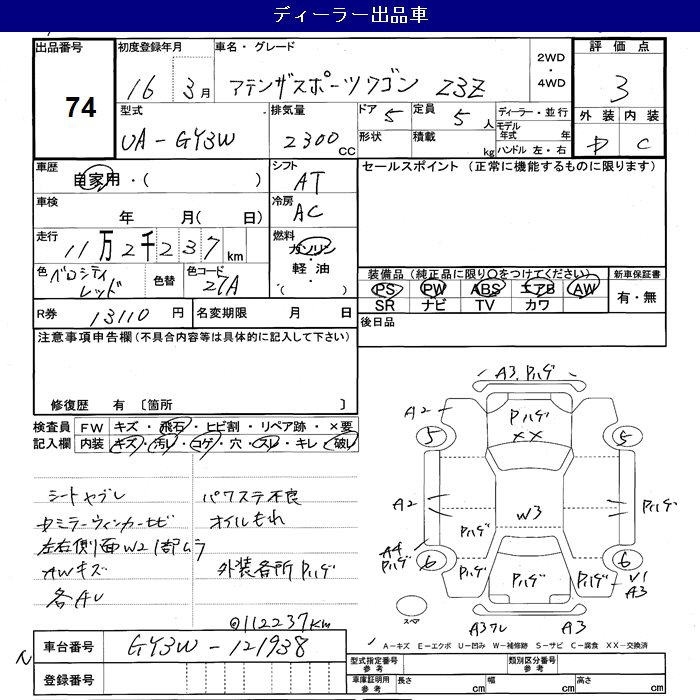 ディーラー出品車
出品番号 74
初度登録年月 16年 3月
車名・グレード アテンザスポーツワゴン 23Z
2WD・4WD
評価点 3
外装 内装 C
型式 UA-GY3W
排気量 2300cc
ドア 5 定員 5人
形状 積載 kg
ディーラー・並行
モデル年式 年
ハンドル 左・右
車歴 自家用・( )
シフト AT
セールスポイント (正常に機能するものに限ります)
車検 年 月( 日)
冷房 AC
走行 11万2千237km
燃料 ガソリン・軽油・( )
色 ベロシティレッド 色替
色コード 27A
装備品 (純正品に限り〇をつけてください) 新車保証書
PS PW ABS エアB AW 有・無
SR ナビ TV カワ
R券 13110円 名変期限 月 日
後日品
注意事項申告欄 (不具合内容等は具体的に記入して下さい)
修復歴 有 〔箇所 〕
検査員記入欄 FW キズ・飛石・ヒビ割・リペア跡・×要
内装 キズ・汚れ・コゲ・穴・スレ・キレ・破れ
シートヤブレ パワステ不良
ミラーウィンカーヒビ オイルもれ
左右側面W2 1部ムラ
AWキズ 外装各所Pハゲ
各AU
@112237km
車台番号 GY3W-121938
登録番号
A3.Pハゲ
A2 Pハゲ
5 XX 5
A2 W3 Pハゲ
Pハゲ
A4 Pハゲ
6 6
Pハゲ Pハゲ Pハゲ V1 A3
スペア
A3ワレ A3
A-キズ E-エクボ U-凹み W-補修跡 S-サビ C-腐食 XX-交換済
型式指定番号 参考 類別区分番号 参考
車庫証明用 参考 長さ cm 幅 cm 高さ cm